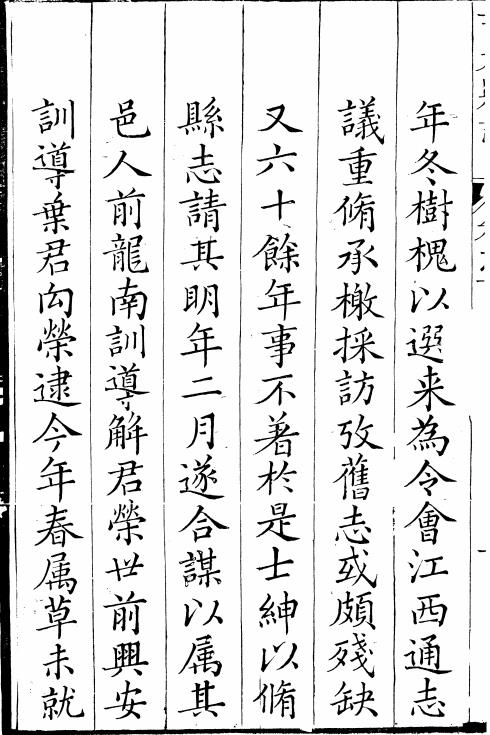 年冬樹槐以選来為令會江西通志
議重脩承檄採訪攷舊志或頗殘缺
又六十餘年事不著於是士紳以脩
縣志請其明年二月遂合謀以属其
邑人前龍南訓導解君榮世前興安
訓導葉君向榮逮今年春属草未就